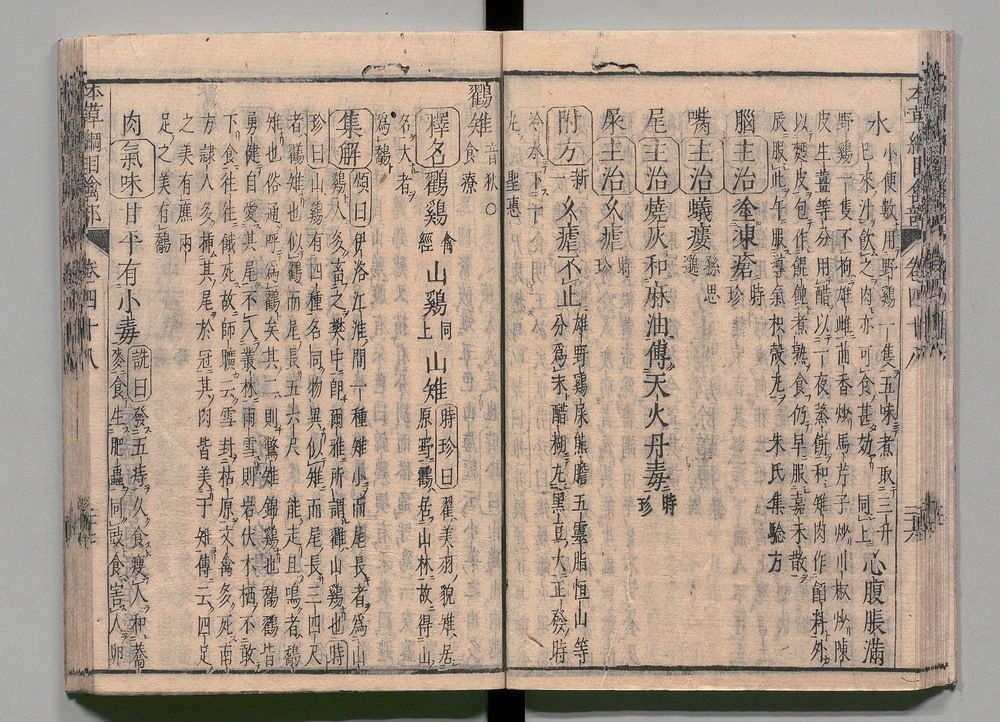 水小便數用野鷄一隻五味煮取三升
已來汁飲之肉亦可食甚効 同上 心腹脹滿
野鷄一隻不拘雄雌茴香炒馬芹子炒川椒炒陳
皮生薑等分用醋以一夜蒸餅和雉肉作餡料外
以麪皮包作餛飩煮熟食仍早服嘉禾散
辰服此午服導氣枳殼丸 朱氏集驗方
腦 主治 塗凍瘡 時珍
嘴 主治 蟻瘻 孫思邈
尾 主治 燒灰和麻油傅天火丹毒 時珍
屎 主治 久瘧 時珍
附方 新一 久瘧不止 雄野鷄屎熊膽五靈脂恒山等
分爲末醋糊丸黑豆大正發時
冷水下一丸 聖惠
鸐雉 音狄○食療
釋名 鸐鷄 禽經 山鷄 同上 山雉 時珍曰翟美羽貌雉居
原野鸐居山林故得山
名大者
爲鷮
集解 頌曰伊洛江淮間一種雉小而尾長者爲山
鷄人多畜之樊中卽爾雅所謂鸐山鷄也時
珍曰山鷄有四種名同物異似雉而尾長三四尺
者鸐雉也似鸐而尾長五六尺能走且鳴者鷮
雉也俗通呼爲鸐矣其二則鷩雉錦鷄也鷮鸐皆
勇健自愛其尾不入叢林雨雪則岩伏木栖不敢
下食往往餓死故師曠云雪封枯原文禽多死南
方隷人多種其尾於冠其肉皆美于雉傳云四足
之美有麃兩
足之美有鷮
肉 氣味 甘平有小毒 詵曰發五痔久食瘦人和蕎
麥食生肥蟲同豉食害人卵
本草綱目禽部 卷四十八
本草綱目禽部 卷四十八